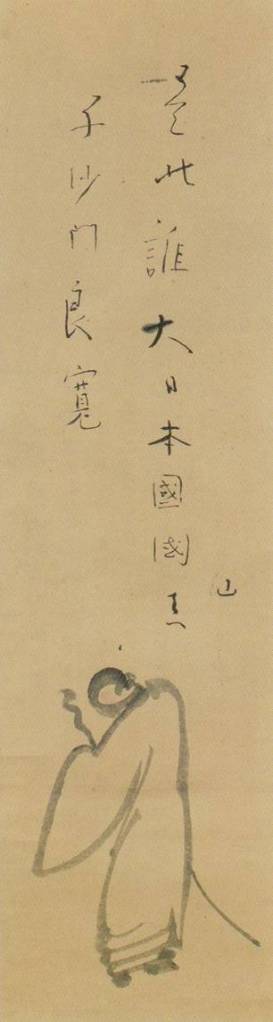 是此誰大日本國國仙真
子沙門良寬